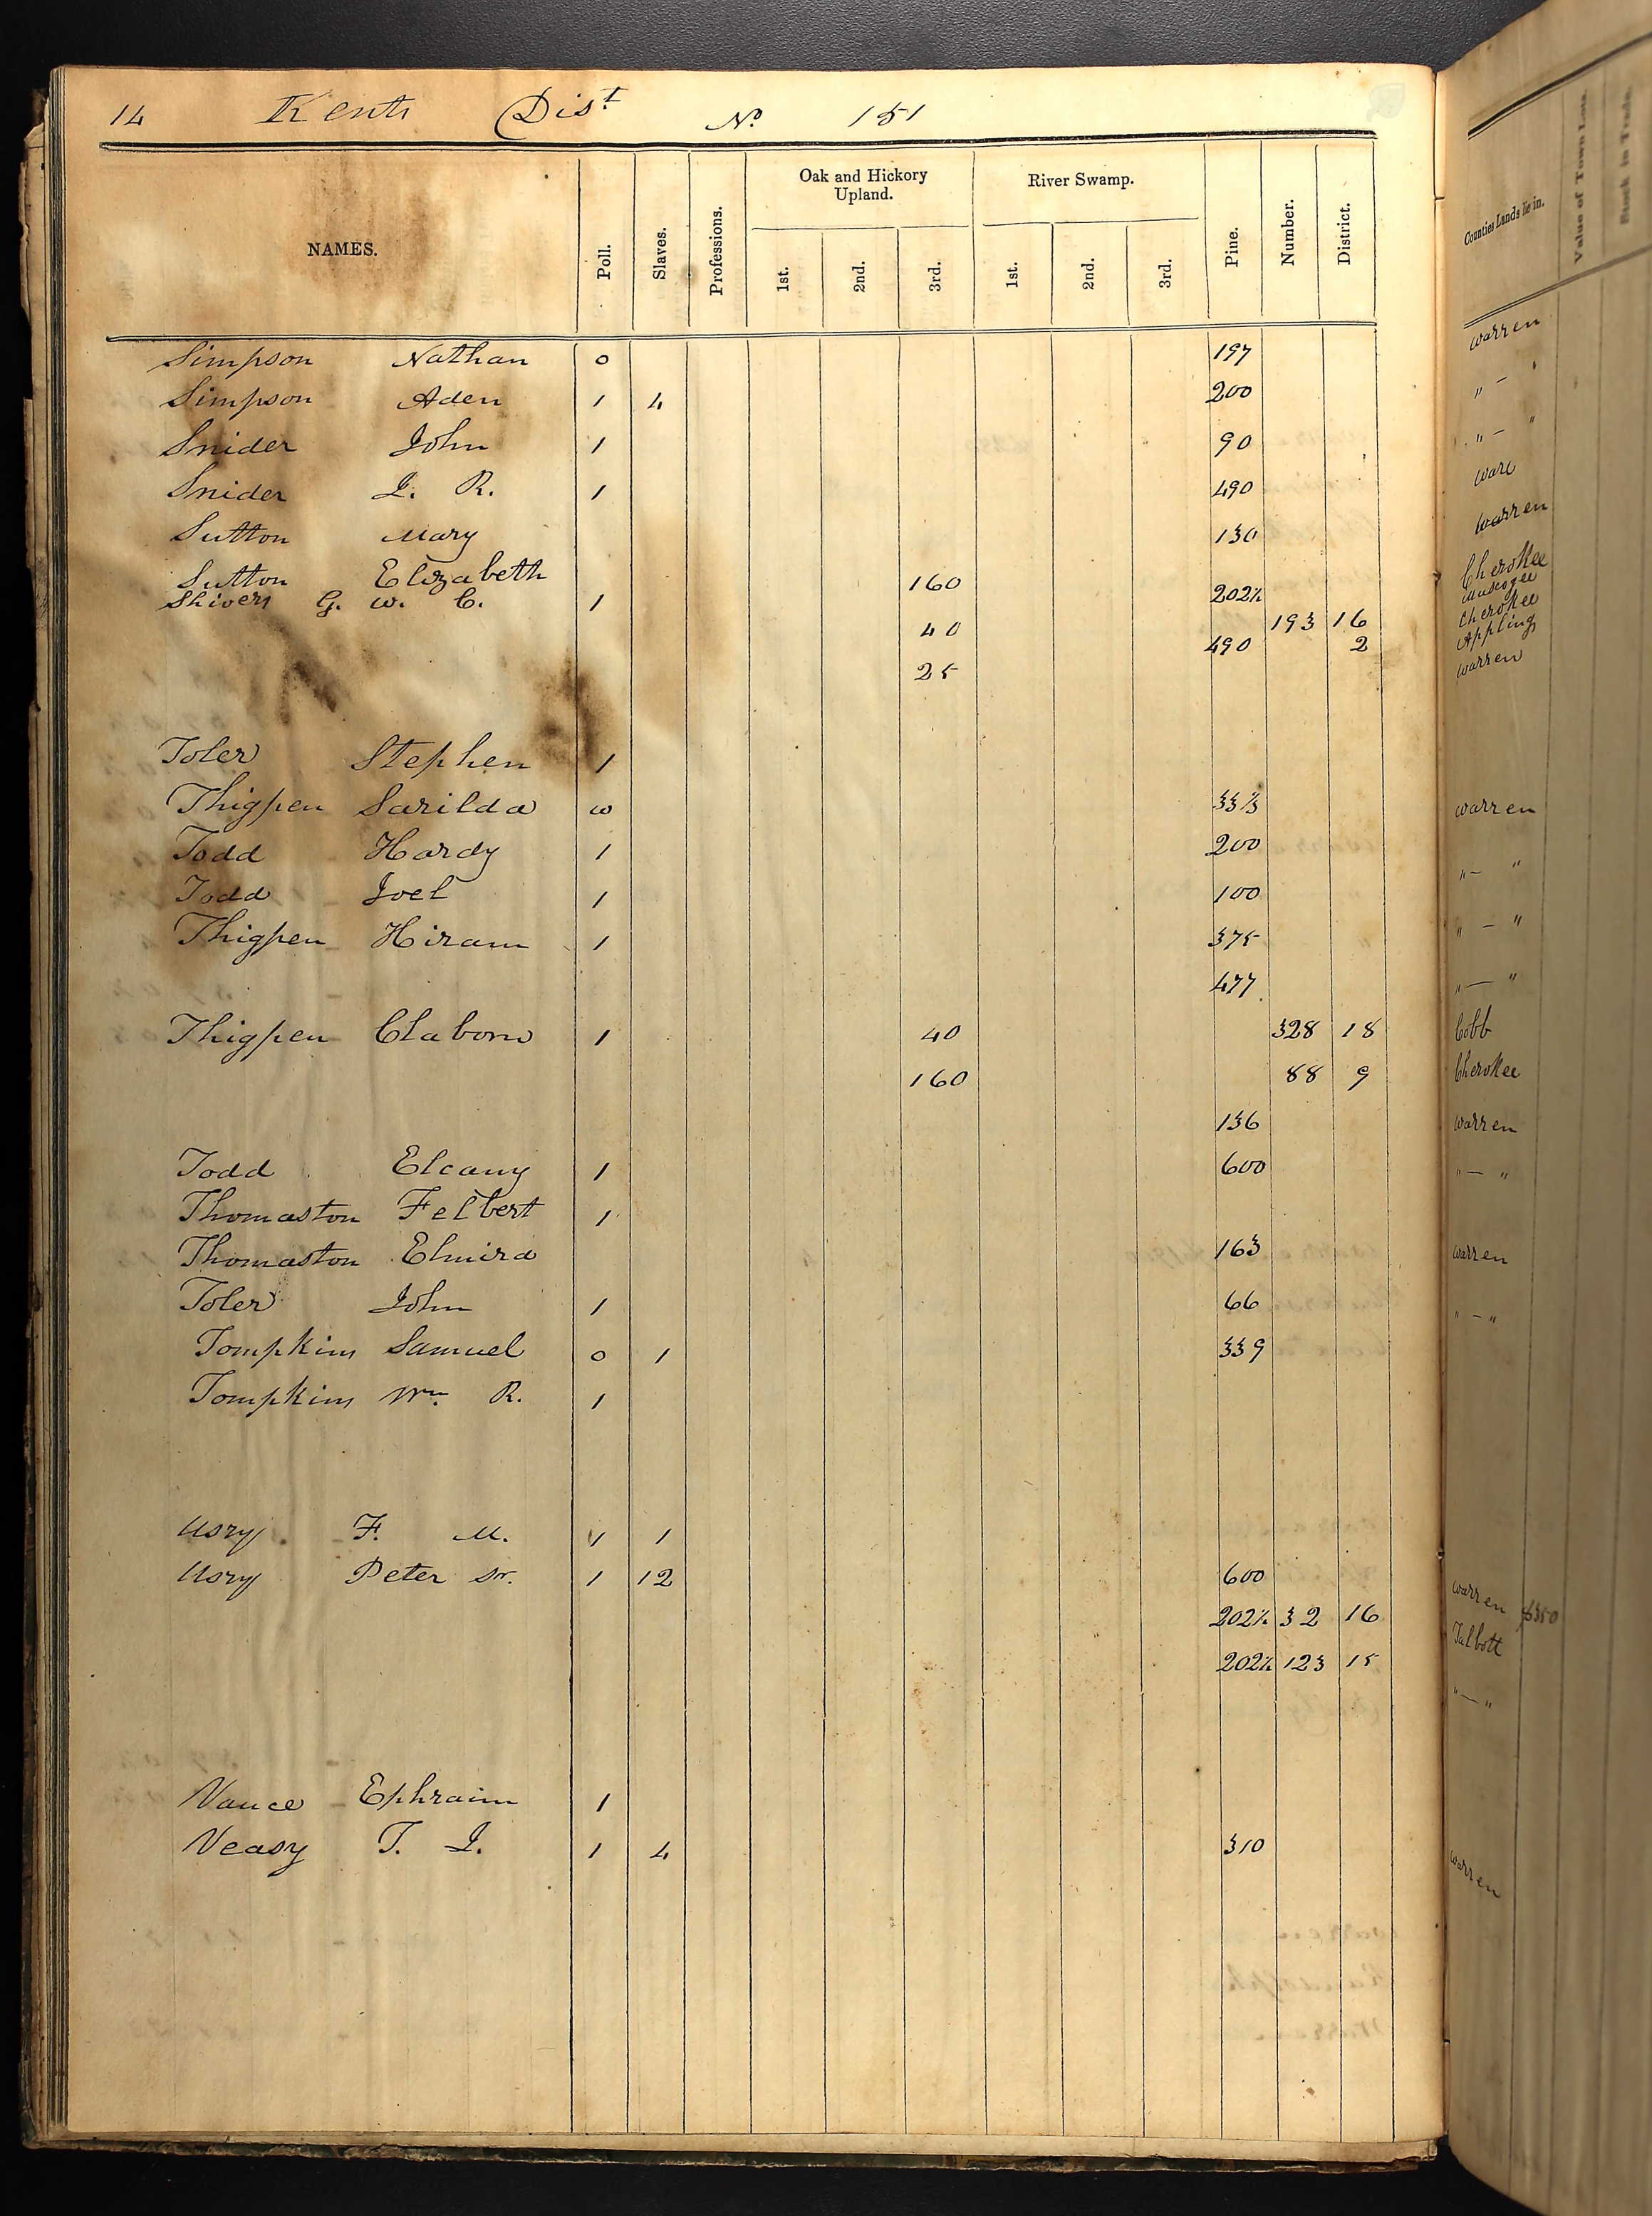 14 Kents Dist No 151
NAMES. Poll. Slaves. Professions. Oak and Hickory Upland. 1st. 2nd. 3rd. River Swamp. 1st. 2nd. 3rd. Pine. Number. District. Counties Lands lie in. Value of Town Lots. Stock in Trade.
Simpson Nathan 0 197 Warren
Simpson Aden 1 4 200 " — "
Snider John 1 90 " — "
Snider J. R. 1 490 Ware
Sutton Mary 130 Warren
Sutton Elizabeth 160 Cherokee
Shivers G. W. C. 1 202½ Muscogee
40 193 16 Cherokee
490 2 Appling
25 Warren
Toler Stephen 1
Thigpen Sarilda w 33⅓ Warren
Todd Hardy 1 200 " — "
Todd Joel 1 100 " — "
Thigpen Hiram 1 375 " — "
477
Thigpen Claborn 1 40 328 18 Cobb
160 88 9 Cherokee
136 Warren
Todd Elcany 1 600 " — "
Thomaston Felbert 1
Thomaston Elmira 163 Warren
Toler John 1 66 " — "
Tompkins Samuel 0 1 339
Tompkins Wm. R. 1
Usry F. M. 1 1
Usry Peter Sr. 1 12 600 Warren $350
202½ 32 16 Talbott
202½ 123 15 " — "
Vance Ephraim 1
Veasy T. J. 1 4 310 Warren